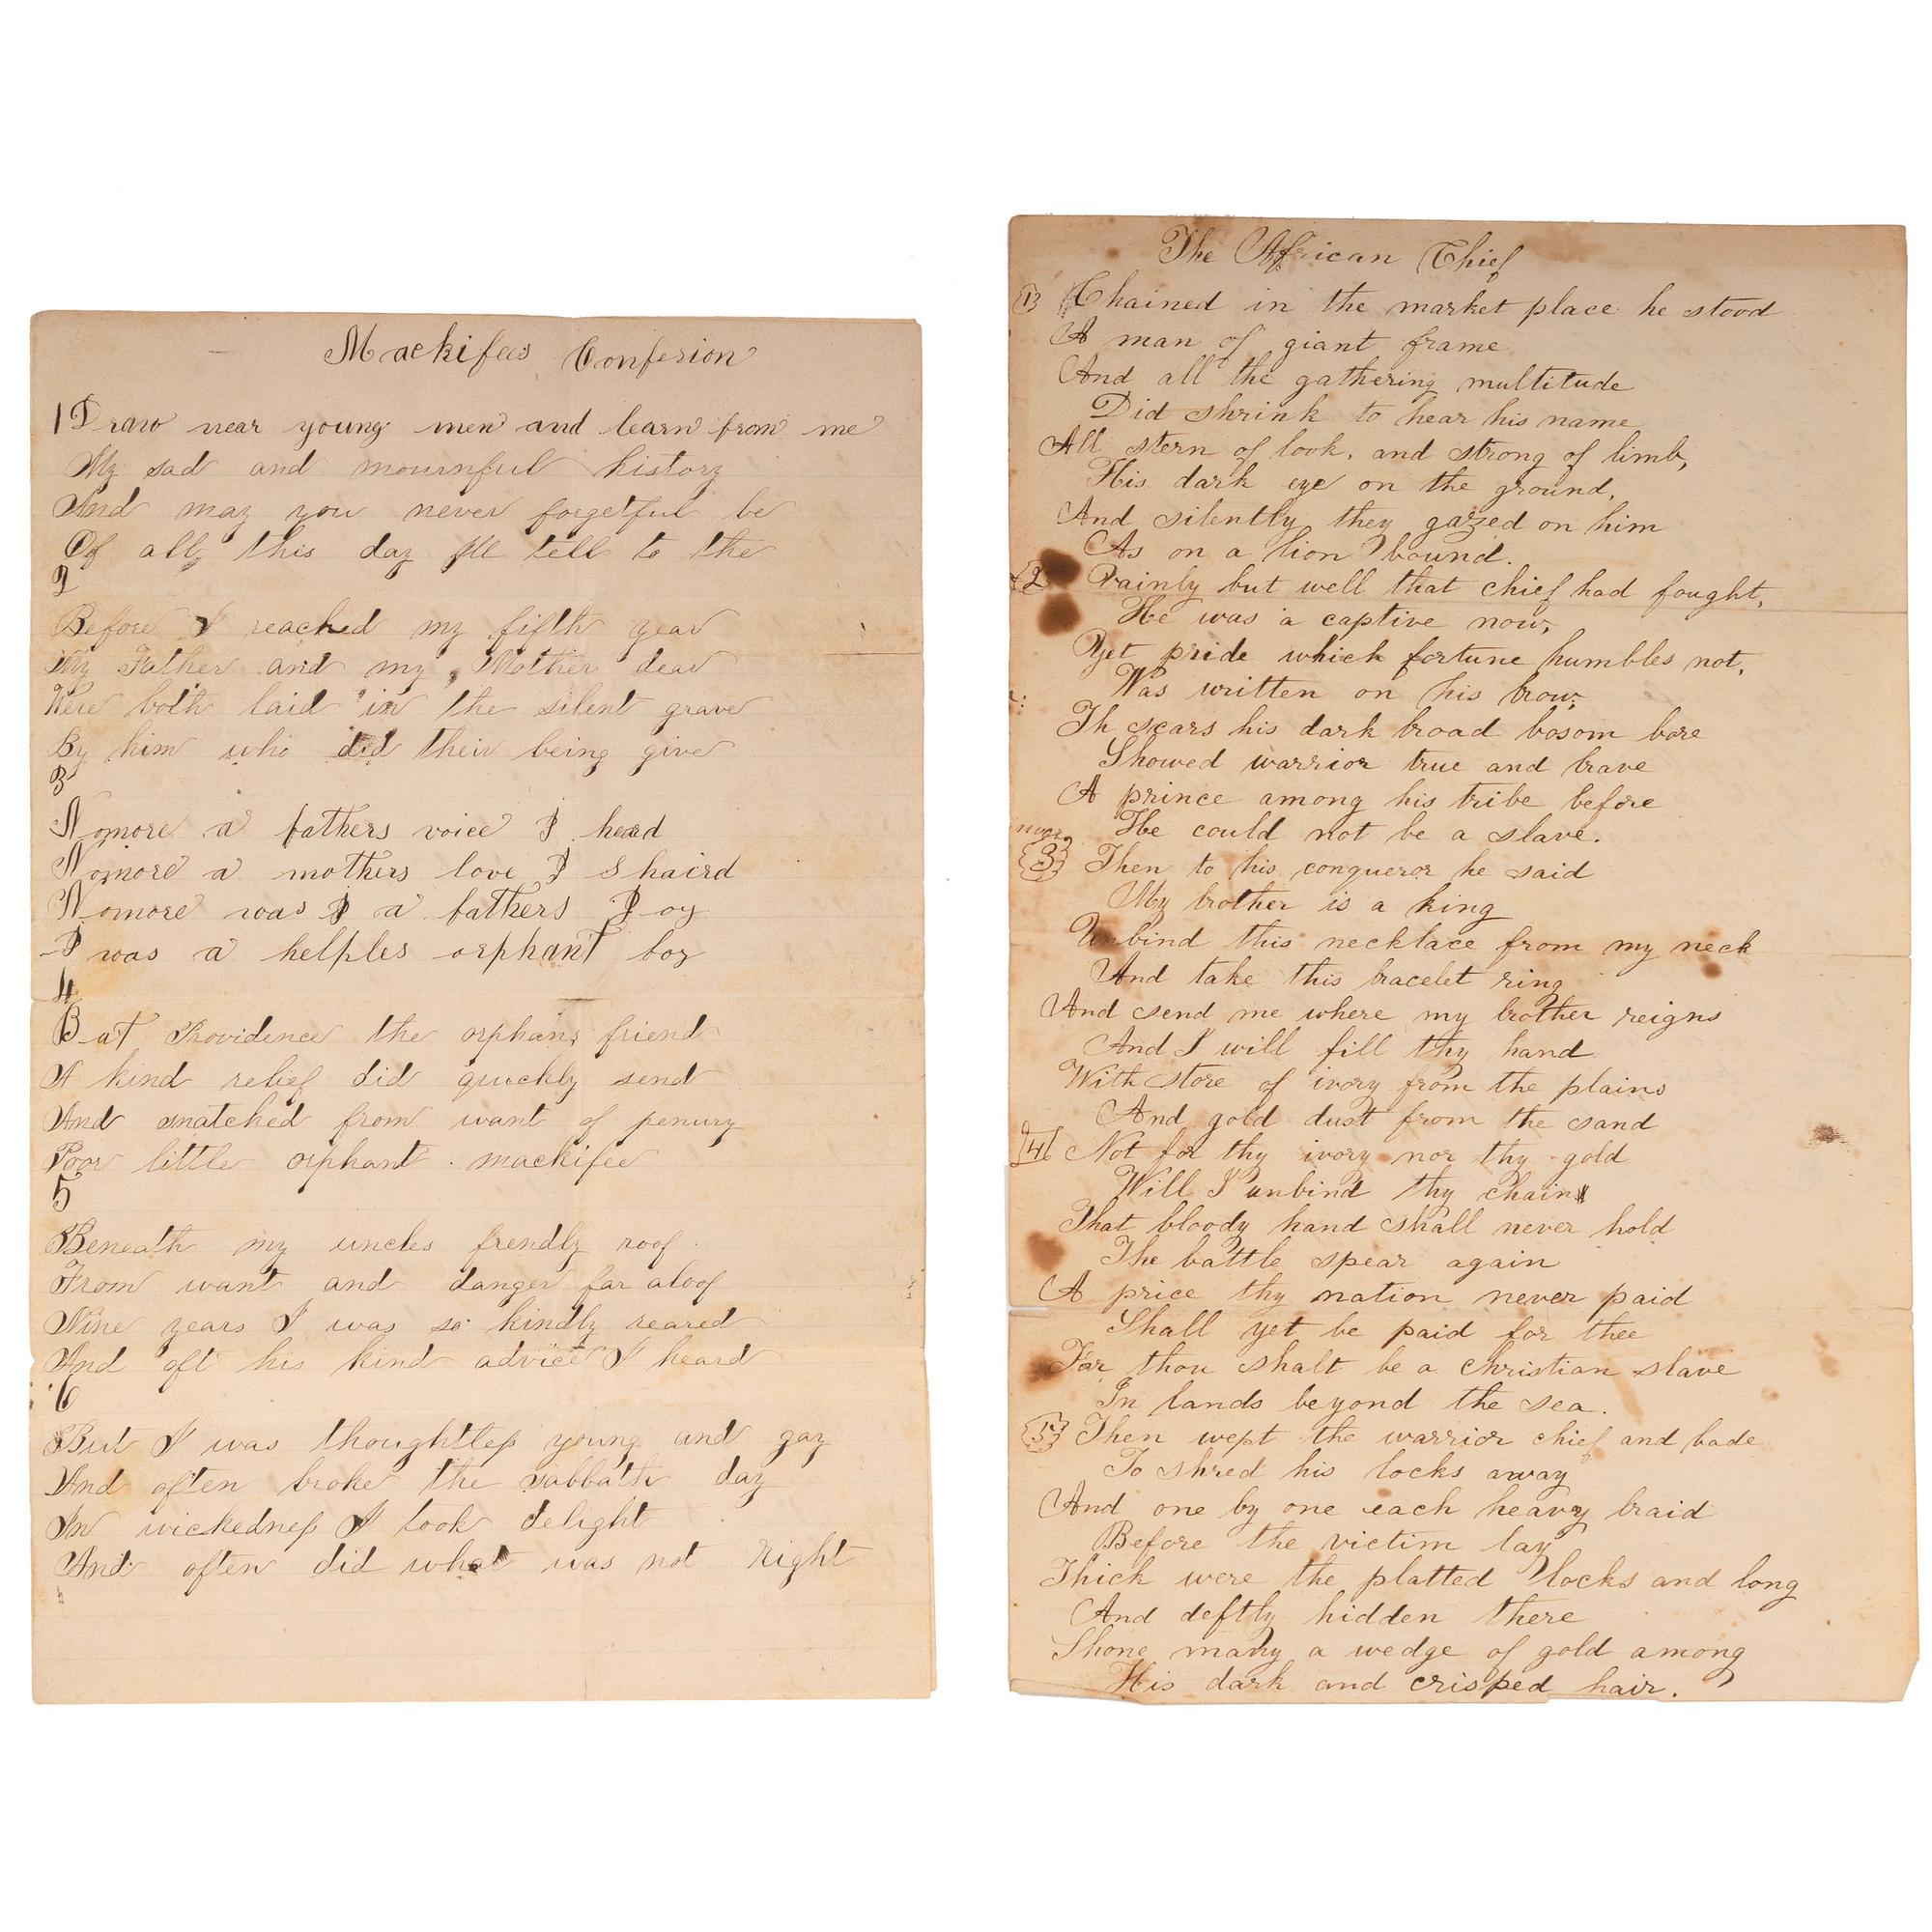 Mackifees Confesion
1 Draw near young men and learn from me
My sad and mournful history
And may you never forgetful be
Of all this day Ill tell to the
2
Before I reached my fifth year
My Father and my Mother dear
Were both laid in the silent grave
By him who did their being give
3
Nomore a fathers voice I heard
Nomore a mothers love I shaird
Nomore was I a fathers Joy
I was a helples orphant boy
4
Bat Providence the orphans friend
A kind relief did quickly send
And snatched from want of penury
Poor little orphant mackifee
5
Beneath my uncles frendly roof
From want and danger far aloof
Nine years I was so kindly reared
And oft his kind advice I heard
6
But I was thoughtless young and gay
And often broke the sabbath day
In wickedness I took delight
And often did what was not right
The African Chief
1 Chained in the market place he stood
A man of giant frame
And all the gathering multitude
Did shrink to hear his name
All stern of look, and strong of limb,
His dark eye on the ground,
And silently they gazed on him
As on a lion bound.
2 Vainly but well that chief had fought,
He was a captive now,
Yet pride which fortune humbles not,
Was written on his brow,
Th scars his dark broad bosom bore
Showed warrior true and brave
A prince among his tribe before
He could not be a slave.
3 Then to his conqueror he said
My brother is a king
Unbind this necklace from my neck
And take this bracelet ring
And send me where my brother reigns
And I will fill thy hand
With store of ivory from the plains
And gold dust from the sand
4 Not for thy ivory nor thy gold
Will I unbind thy chain
That bloody hand shall never hold
The battle spear again
A price thy nation never paid
Shall yet be paid for thee
For thou shalt be a christian slave
In lands beyond the sea.
5 Then wept the warrior chief and bade
To shred his locks away
And one by one each heavy braid
Before the victim lay
Thick were the platted locks and long
And deftly hidden there
Shone many a wedge of gold among
His dark and crisped hair.